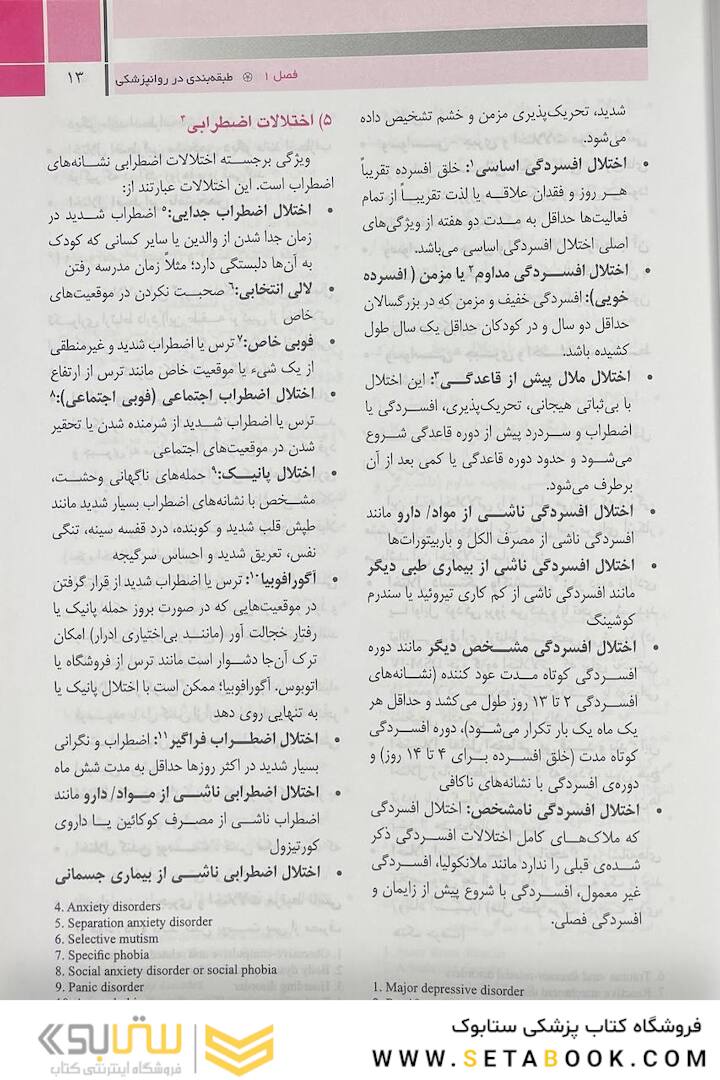 فصل ۱ ⊛ طبقه‌بندی در روانپزشکی ۱۳
شدید، تحریک‌پذیری مزمن و خشم تشخیص داده
می‌شود.
• اختلال افسردگی اساسی۱: خلق افسرده تقریباً
هر روز و فقدان علاقه یا لذت تقریباً از تمام
فعالیت‌ها حداقل به مدت دو هفته از ویژگی‌های
اصلی اختلال افسردگی اساسی می‌باشد.
• اختلال افسردگی مداوم۲ یا مزمن ( افسرده
خویی): افسردگی خفیف و مزمن که در بزرگسالان
حداقل دو سال و در کودکان حداقل یک سال طول
کشیده باشد.
• اختلال ملال پیش از قاعدگی۳: این اختلال
با بی‌ثباتی هیجانی، تحریک‌پذیری، افسردگی یا
اضطراب و سردرد پیش از دوره قاعدگی شروع
می‌شود و حدود دوره قاعدگی یا کمی بعد از آن
برطرف می‌شود.
• اختلال افسردگی ناشی از مواد/ دارو مانند
افسردگی ناشی از مصرف الکل و باربیتورات‌ها
• اختلال افسردگی ناشی از بیماری طبی دیگر
مانند افسردگی ناشی از کم کاری تیروئید یا سندرم
کوشینگ
• اختلال افسردگی مشخص دیگر مانند دوره
افسردگی کوتاه مدت عود کننده (نشانه‌های
افسردگی ۲ تا ۱۳ روز طول می‌کشد و حداقل هر
یک ماه یک بار تکرار می‌شود)، دوره افسردگی
کوتاه مدت (خلق افسرده برای ۴ تا ۱۴ روز) و
دوره‌ی افسردگی با نشانه‌های ناکافی
• اختلال افسردگی نامشخص: اختلال افسردگی
که ملاک‌های کامل اختلالات افسردگی ذکر
شده‌ی قبلی را ندارد مانند ملانکولیا، افسردگی
غیر معمول، افسردگی با شروع پیش از زایمان و
افسردگی فصلی.
1. Major depressive disorder
۵) اختلالات اضطرابی۴
ویژگی برجسته اختلالات اضطرابی نشانه‌های
اضطراب است. این اختلالات عبارتند از:
• اختلال اضطراب جدایی:۵ اضطراب شدید در
زمان جدا شدن از والدین یا سایر کسانی که کودک
به آن‌ها دلبستگی دارد؛ مثلاً زمان مدرسه رفتن
• لالی انتخابی:۶ صحبت نکردن در موقعیت‌های
خاص
• فوبی خاص:۷ ترس یا اضطراب شدید و غیرمنطقی
از یک شیء یا موقعیت خاص مانند ترس از ارتفاع
• اختلال اضطراب اجتماعی (فوبی اجتماعی):۸
ترس یا اضطراب شدید از شرمنده شدن یا تحقیر
شدن در موقعیت‌های اجتماعی
• اختلال پانیک:۹ حمله‌های ناگهانی وحشت،
مشخص با نشانه‌های اضطراب بسیار شدید مانند
طپش قلب شدید و کوبنده، درد قفسه سینه، تنگی
نفس، تعریق شدید و احساس سرگیجه
• آگورافوبیا۱۰: ترس یا اضطراب شدید از قرار گرفتن
در موقعیت‌هایی که در صورت بروز حمله پانیک یا
رفتار خجالت آور (مانند بی‌اختیاری ادرار) امکان
ترک آن‌جا دشوار است مانند ترس از فروشگاه یا
اتوبوس. آگورافوبیا؛ ممکن است با اختلال پانیک یا
به تنهایی روی دهد
• اختلال اضطراب فراگیر۱۱: اضطراب و نگرانی
بسیار شدید در اکثر روزها حداقل به مدت شش ماه
• اختلال اضطرابی ناشی از مواد/ دارو مانند
اضطراب ناشی از مصرف کوکائین یا داروی
کورتیزول
• اختلال اضطرابی ناشی از بیماری جسمانی
4. Anxiety disorders
5. Separation anxiety disorder
6. Selective mutism
7. Specific phobia
8. Social anxiety disorder or social phobia
9. Panic disorder
فروشگاه کتاب پزشکی ستابوک
WWW.SETABOOK.COM
ستابوک
فروشگاه اینترنتی کتاب